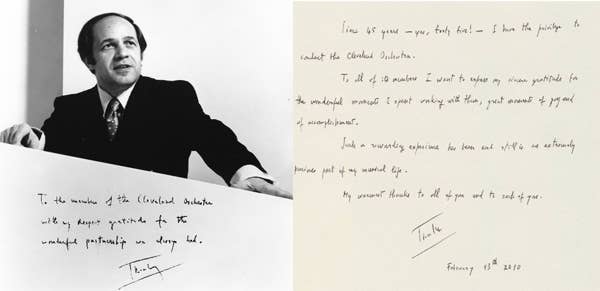 To the members of the Cleveland Orchestra
with my deepest gratitude for the
wonderful partnership we always had.
Since 45 years – yes, forty five! – I have the privilege to
conduct the Cleveland Orchestra.
To all of its members I want to express my sincere gratitude for
the wonderful moments I spent working with them, great moments of joy and
of accomplishment.
Such a rewarding experience has been and still is an extremely
precious part of my musical life.
My warmest thanks to all of you and to each of you.
February 13th 2010